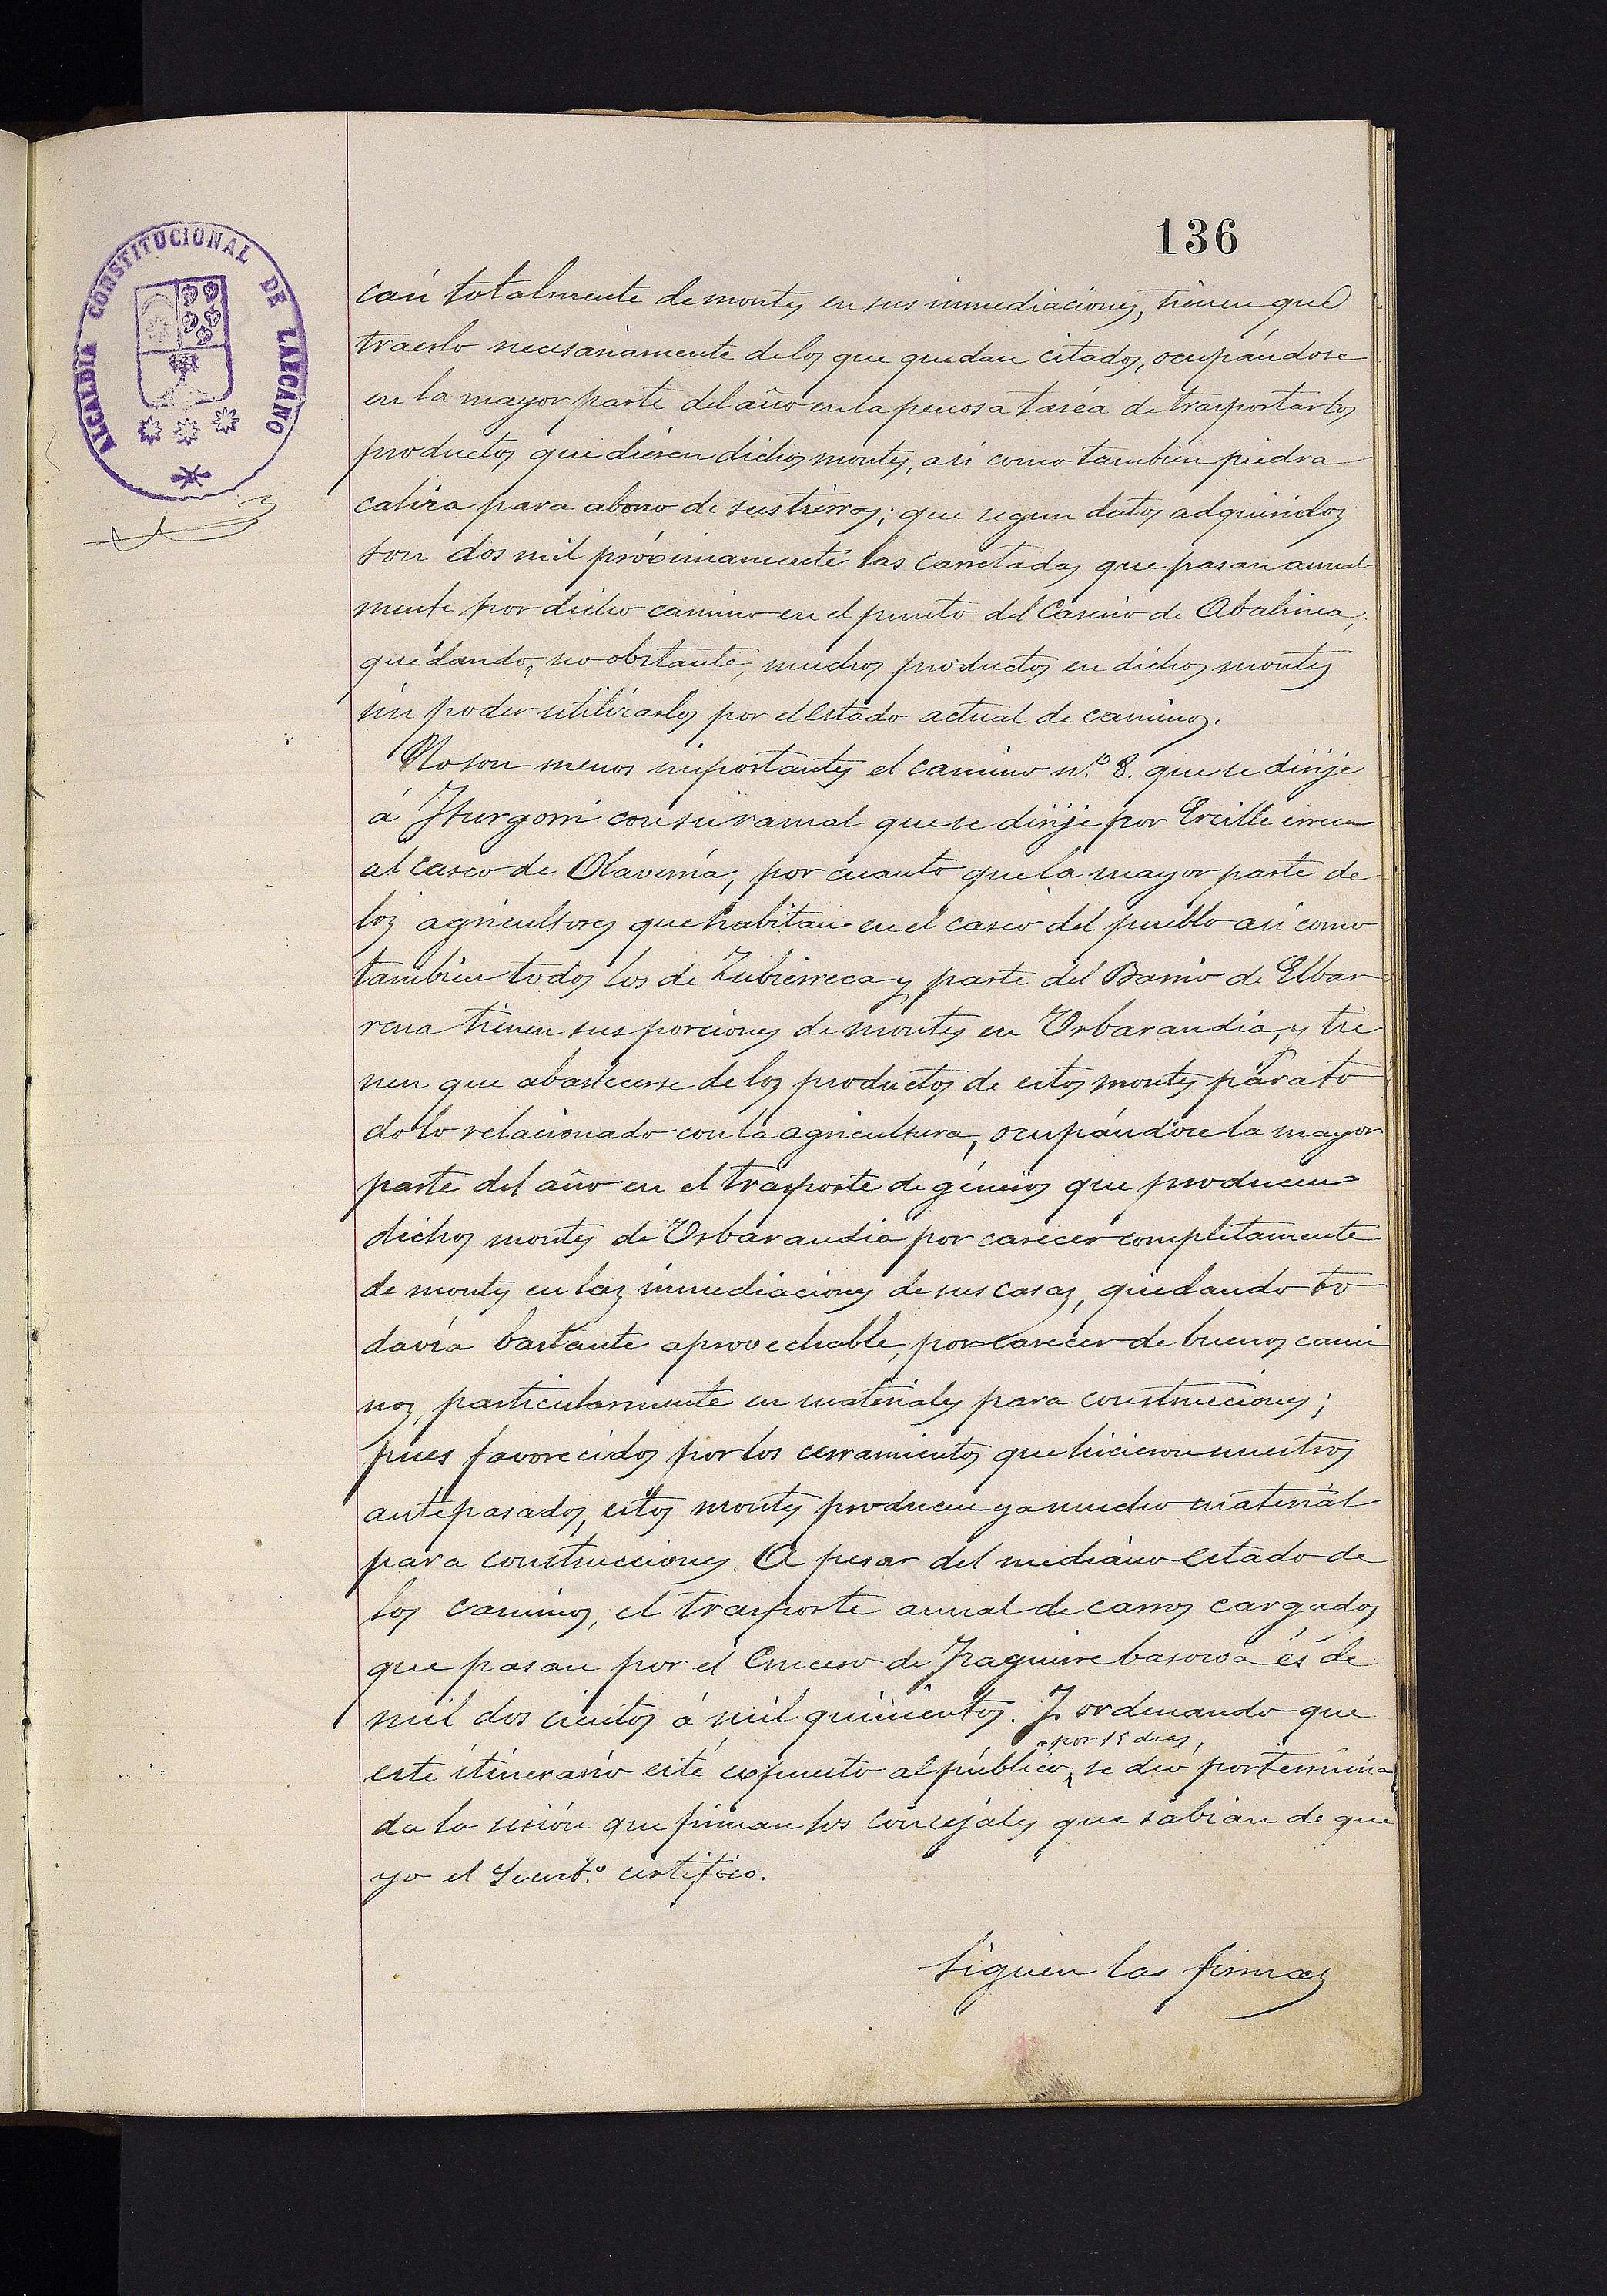 136
ALCALDIA CONSTITUCIONAL DE LAZCANO
can totalmente de montes en sus inmediaciones, tienen que
traerlo necesariamente de los que quedan citados, ocupándose
en la mayor parte del año en la penosa taréa de trasportar los
productos que dieren dichos montes, asi como tambien piedra
caliza para abono de sus tierras; que segun datos adquiridos
son dos mil próximamente las carretadas que pasan anual-
mente por dicho camino en el punto del Caserio de Abalinea,
quedando, no obstante, muchos productos en dichos montes
sin poder utilizarlos por el estado actual de caminos.
No son menos importantes el camino n.º 8. que se dirije
á Iturgorri con su ramal que se dirije por Ercilte erreca
al casco de Olaverría, por cuanto que la mayor parte de
los agricultores que habitan en el casco del pueblo asi como
tambien todos los de Zubierreca y parte del Barrio de Elbar
rena tienen sus porciones de montes en Urbarandia, y tie
nen que abastecerse de los productos de estos montes para to
do lo relacionado con la agricultura, ocupándose la mayor
parte del año en el trasporte de géneros que producen
dichos montes de Urbarandia por carecer completamente
de montes en las inmediaciones de sus casas, quedando to
davía bastante aprovechable, por carecer de buenos cami
nos, particularmente en materiales para construcciones;
pues favorecidos por los cerramientos que hicieron nuestros
antepasados, estos montes producen ya mucho material
para construcciones. A pesar del mediano estado de
los caminos, el trasporte anual de carros cargados
que pasan por el Crucero de Izaguirre basoroa és de
mil dos cientos á mil quinientos. Y ordenando que
por 15 dias,
este itinerario esté expuesto al público, se dió por termina
da la sesión que firman los concejales que sabian de que
yo el Secret.º certifico.
Siguen las firmas